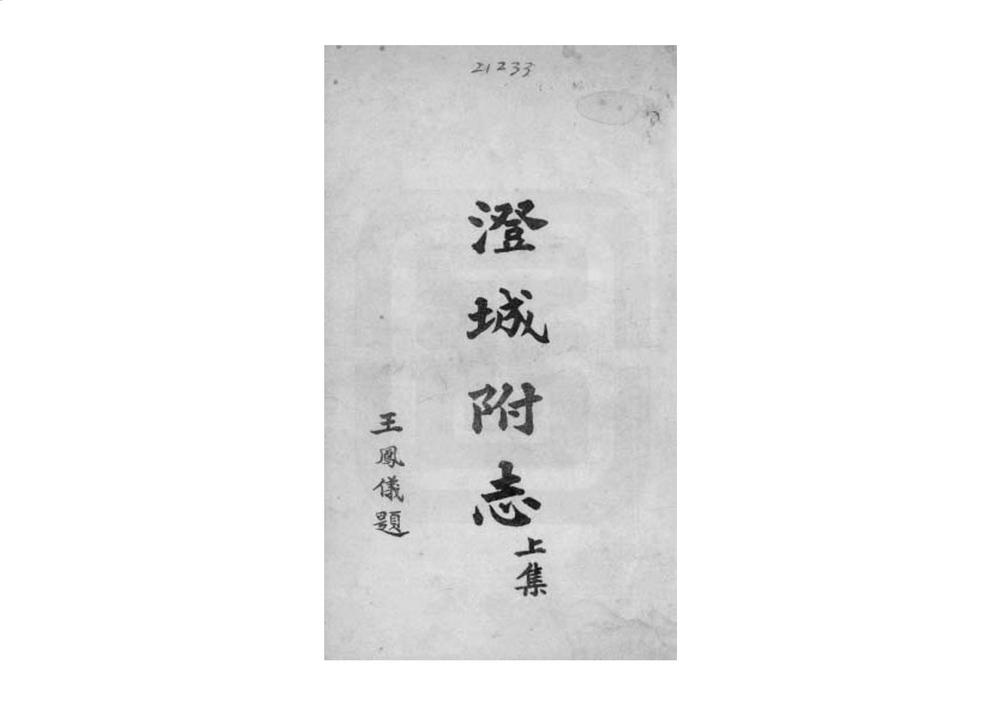 21233
澄城附志
上集
王鳳儀題